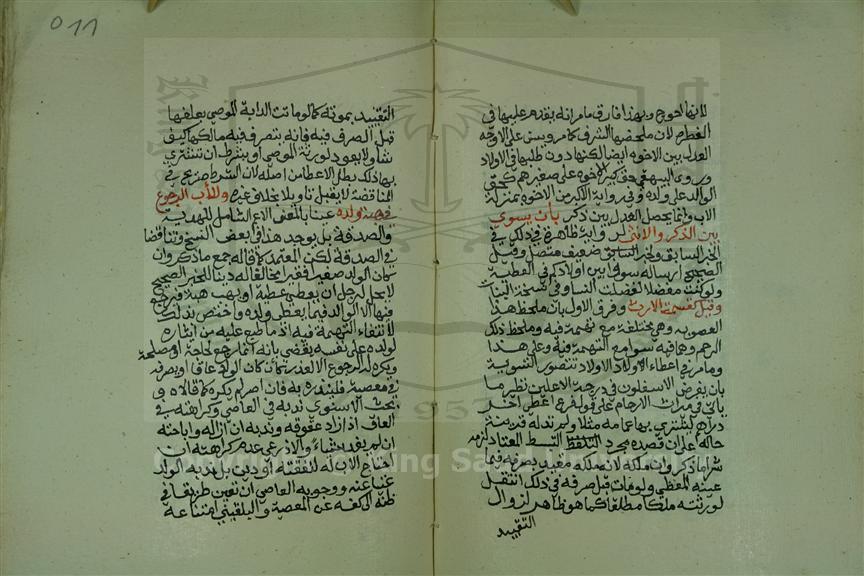 ٥١١
لانها احوج وبهذا فارق ما مر انه يقدم عليها في
الفطرة لان ملحظها الشرف كما مر ويسن على الاوجه
العدل بين الاخوة ايضا لكنها دون طلبها في الاولاد
وروى البيهقي حق كبير الاخوة على صغيرهم كحق
الوالد على ولده وفي رواية الاكبر من الاخوة بمنزلة
الاب وانما يحصل العدل بين ذكر بأن يسوي
بين الذكر والانثى لرواية ظاهرة في ذلك في
الخبر السابق ولخبر السابق ضعيف متصل وقيل
الصحيح ارساله سووا بين اولادكم في العطية
ولو كنت مفضلا لفضلت النساء وفي نسخة البنات
وقيل كقسمة الارث وفرق الاول بان ملحظ هذا
العصوبة وهي مختلفة مع تهمة فيه وملحظ ذلك
الرحم وهما فيه سواء مع التهمة فيه وعلى هذا
وما مر في اعطاء الاولاد الاولاد تتصور التسوية
بان يفرض الاسفلون في درجة الاعلين نظير ما
ياتي في ميراث الارحام على قول فرع اعطى اخر
دراهم ليشتري بها عمامة مثلا ولم تدل قرينة
حاله على ان قصده مجرد التبسط المعتاد لزمه
شراء ما ذكر وان ملكه لانه ملكه مقيد بصرفه فيما
عينه المعطي ولو مات قبل صرفه في ذلك انتقل
لورثته ملكا مطلقا كما هو ظاهر لزوال
التقييد
التقييد بموته كما لو ماتت الدابة الموصى بعلفها
قبل الصرف فيه فانه يتصرف فيه مالكها كيف
شاء ولا يعود لورثة الموصي او بشرط ان تشتري
بها ذلك بطل الاعطاء من اصله لان الشرط صريح في
المناقضة لا يقبل تاويلا بخلاف غيره وللأب الرجوع
في هبة ولده عينا بالمعنى الاعم الشامل للهدية
والصدقة بل يوجد هذا في بعض النسخ وتناقضا
في الصدقة لكن المعتمد كما قاله جمع ما ذكر وان
كان الولد صغيرا فقيرا مخالفا له دينا للخبر الصحيح
لا يحل لرجل ان يعطي عطية او يهب هبة فيرجع
فيها الا الوالد فيما يعطي ولده واختص بذلك
لانتفاء التهمة فيه اذ ما طبع عليه من ايثاره
لولده على نفسه يقضي بانه انما رجع لحاجة او مصلحة
ويكره له الرجوع الا لعذر كان كان الولد عاقا او يصرفه
في معصية فلينذره به فان اصر لم يكره كما قالاه و
بحث الاسنوي ندبه في العاصي وكراهته في
العاق اذا زاد عقوقه وندبه ان ازاله واباحته
ان لم يفد شيئا والاذرعي عدم كراهته ان
احتاج الاب له لنفقته او دين بل ندبه الولد
غنيا عنه ووجوبه العاصي ان تعين طريقا في
ظنه الى كفه عن المعصية والبلقيني امتناعه